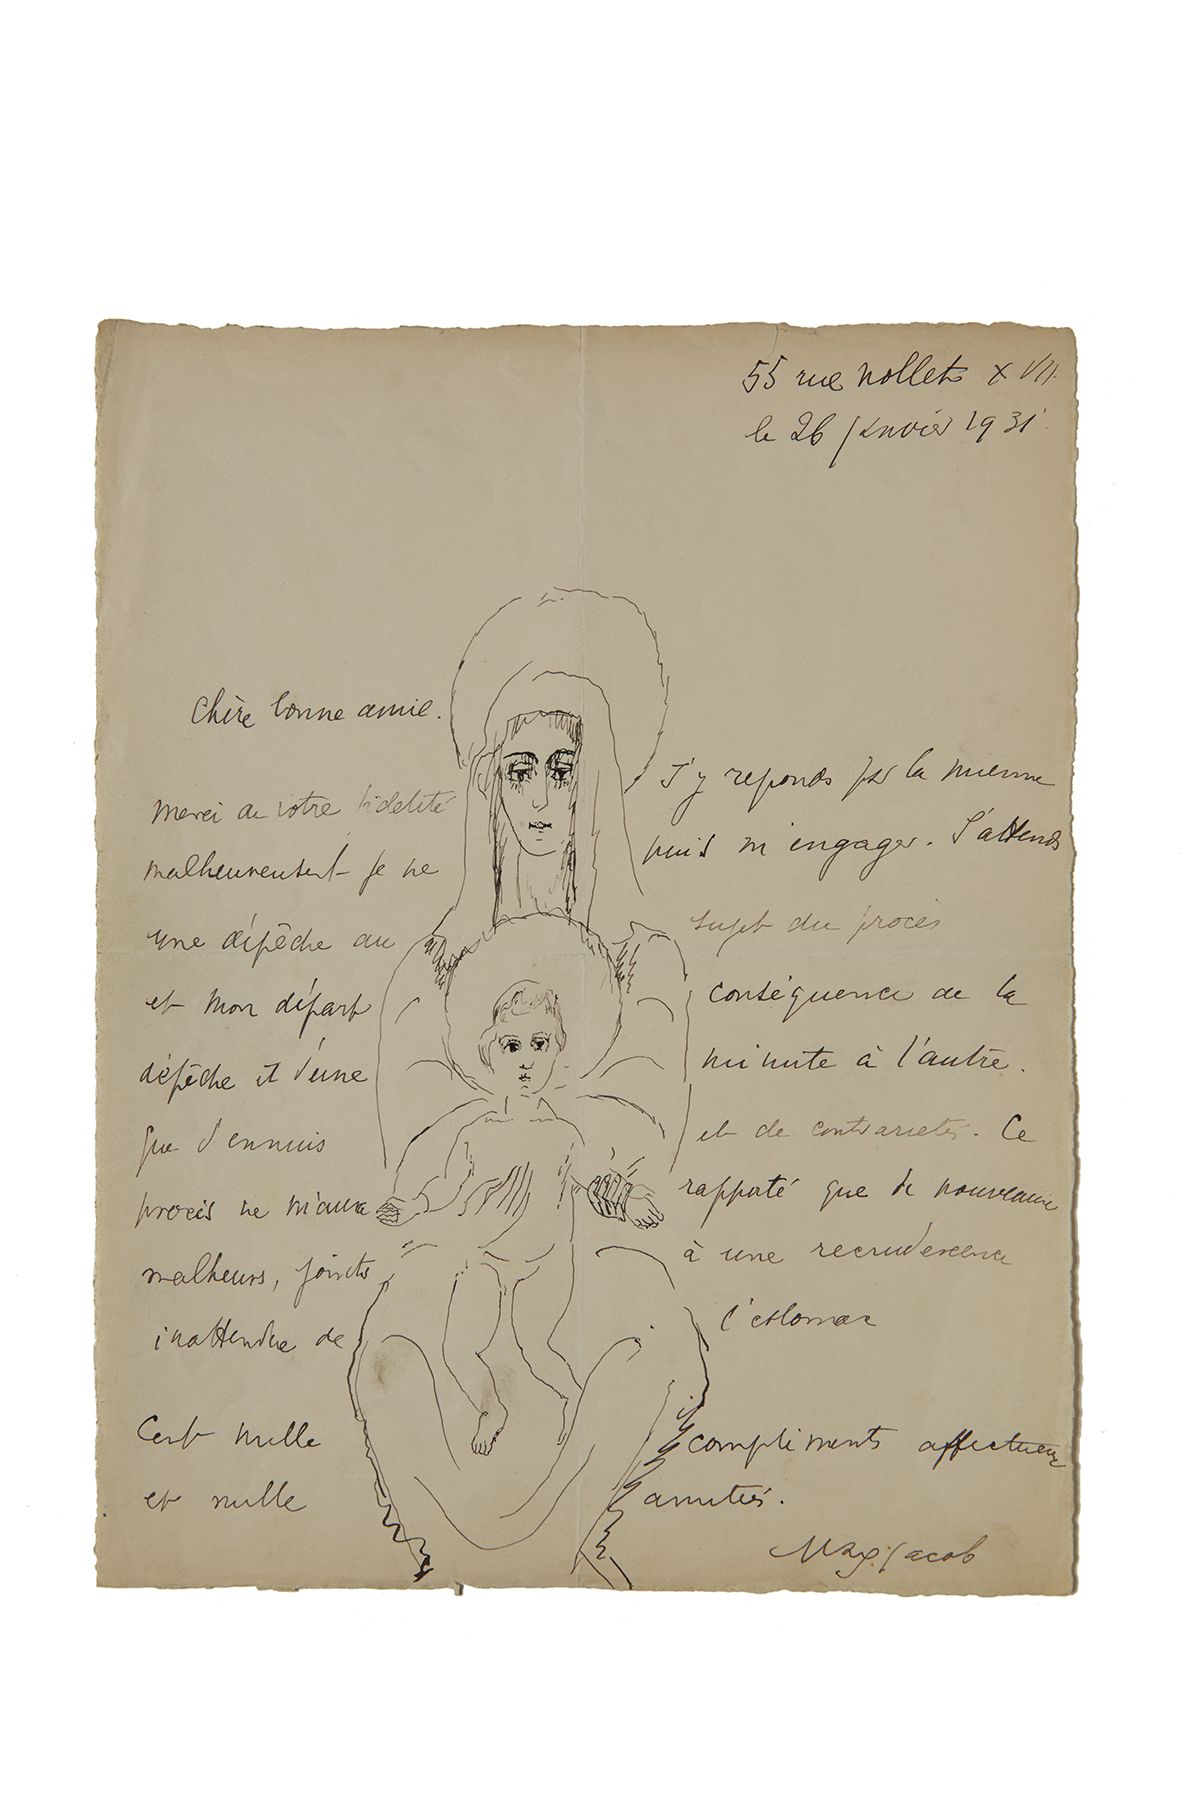 55 rue Nollet XVII.
le 26 janvier 1931
Chère bonne amie.
Merci de votre fidelité J'y reponds par la mienne
malheureusent je ne puis m'engager. J'attends
une dépêche au sujet du procès
et mon départ conséquence de la
dépêche et d'une minute à l'autre.
que d'ennuis et de contrarietés. Ce
procès ne m'aura rapporté que de nouveaux
malheurs, joints à une recrudescence
inattendue de l'estomac
Cent mille compliments affectueux
et mille amitiés.
Max Jacob